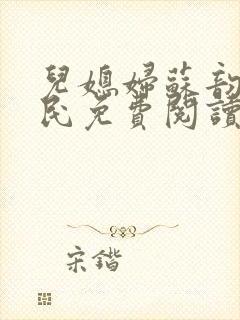 兒媳婦蘇韵
民免費閱讀
宋鍇